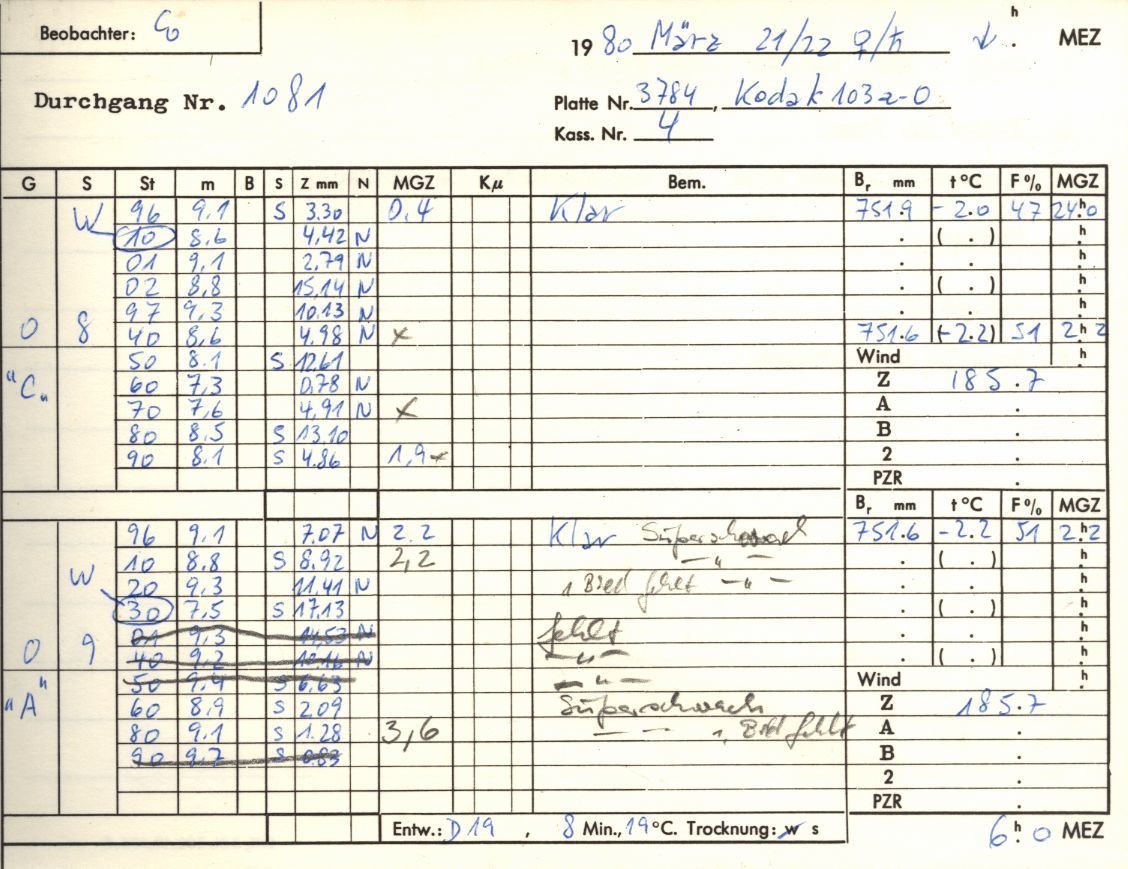 Beobachter:
h
19 80 März 21/22 ♀/♄ . MEZ
Durchgang Nr. 1081
Platte Nr. 3784, Kodak 103a-O
Kass. Nr. 4
G S St m B S Z mm N MGZ Kμ Bem. Br mm t °C F % MGZ
W 96 9.1 S 3.30 0.4 Klar 751.9 -2.0 47 24.h0
10 8.6 4.42 N . ( . ) h.
01 9.1 2.79 N . . h.
02 8.8 15.14 N . ( . ) h.
97 9.3 10.13 N . . h.
0 8 40 8.6 4.98 N x 751.6 (-2.2) 51 2.h2
50 8.1 S 12.61 Wind h.
"C" 60 7.3 0.78 N Z 185.7
70 7.6 4.91 N x A .
80 8.5 S 13.10 B .
90 8.1 S 4.86 1,9 x 2 .
PZR .
Br mm t °C F % MGZ
96 9.1 7.07 N 2.2 Klar Superschwach 751.6 -2.2 51 2.h2
10 8.8 S 8.92 2,2 — " — . ( . ) h.
W 20 9.3 11.41 N 1 Bild fehlt — " — . . h.
30 7.5 S 17.13 . ( . ) h.
01 9.3 14.53 N fehlt . . h.
0 9 40 9.2 10.16 N — " — . ( . ) h.
50 9.4 S 6.63 — " — Wind h.
"A" 60 8.9 S 2.09 Superschwach Z 185.7
80 9.1 S 1.28 3,6 — — 1 Bild fehlt A .
90 9.7 S 0.83 B .
2 .
PZR .
Entw.: D19 , 8 Min., 19 °C. Trocknung: w s
6.h0 MEZ